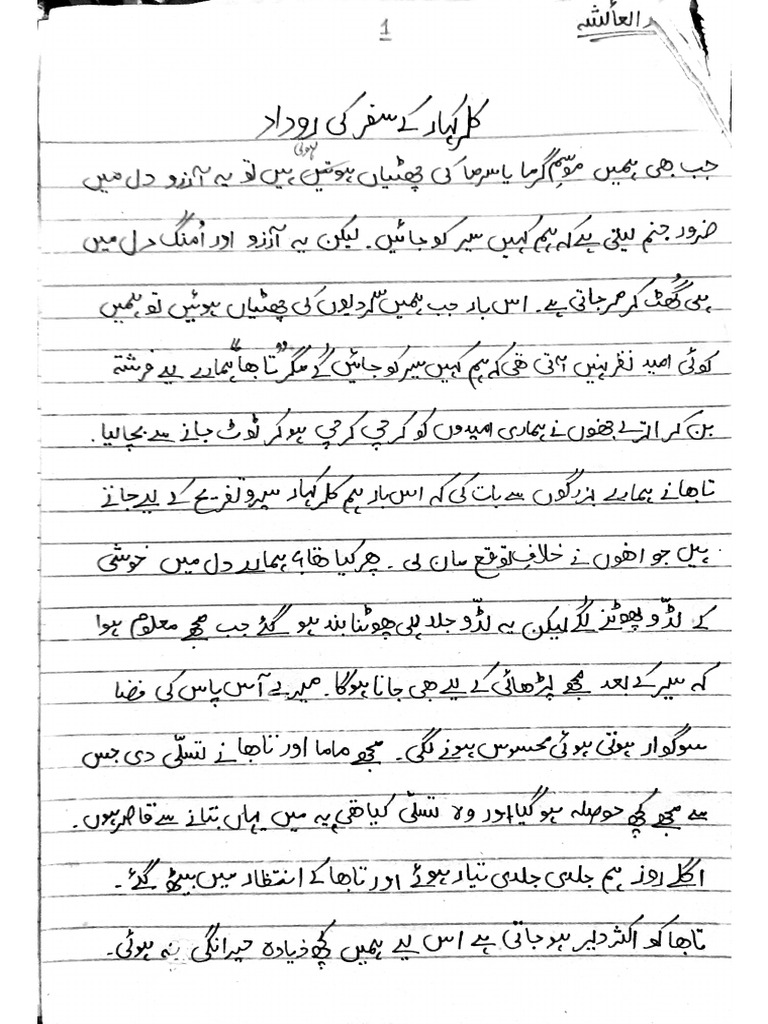 العائشہ
1
کلر کہار کے سفر کی روداد
ہوتی
جب بھی ہمیں موسمِ گرما یا سرما کی چھٹیاں ہوتیں ہیں تو یہ آرزو دل میں
ضرور جنم لیتی ہے کہ ہم کہیں سیر کو جائیں۔ لیکن یہ آرزو اور اُمنگ دل میں
ہی گُھٹ کر مر جاتی ہے۔ اس بار جب ہمیں سردیوں کی چھٹیاں ہوئیں تو ہمیں
کوئی امید نظر نہیں آتی تھی کہ ہم کہیں سیر کو جائیں گے مگر "تابھا" ہمارے لیے فرشتہ
بن کر اترے جنھوں نے ہماری امیدوں کو کرچی کرچی ہو کر ٹوٹ جانے سے بچا لیا۔
تابھا نے ہمارے بزرگوں سے بات کی کہ اس بار ہم کلر کہار سیر و تفریح کے لیے جاتے
ہیں جو انھوں نے خلافِ توقع مان لی۔ پھر کیا تھا؟ ہمارے دل میں خوشی
کے لڈّو پھوٹنے لگے لیکن یہ لڈّو جلد ہی پھوٹنا بند ہو گئے جب مجھے معلوم ہوا
کہ سیر کے بعد مجھے پڑھائی کے لیے بھی جانا ہوگا۔ میرے آس پاس کی فضا
سوگوار ہوتی ہوئی محسوس ہونے لگی۔ مجھے ماما اور تابھا نے تسلّی دی جس
سے مجھے کچھ حوصلہ ہو گیا اور وہ تسلّی کیا تھی یہ میں یہاں بتانے سے قاصر ہوں۔
اگلے روز ہم جلدی جلدی تیار ہوئے اور تابھا کے انتظار میں بیٹھ گئے۔
تابھا کو اکثر دیر ہو جاتی ہے اس لیے ہمیں کچھ ذیادہ حیرانگی نہ ہوئی۔